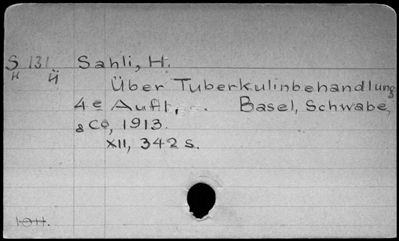 S 131 Sahli, H.
H Ü
Über Tuberkulinbehandlung
4e Aufl, Basel, Schwabe,
& Co, 1913.
XII, 342 s.